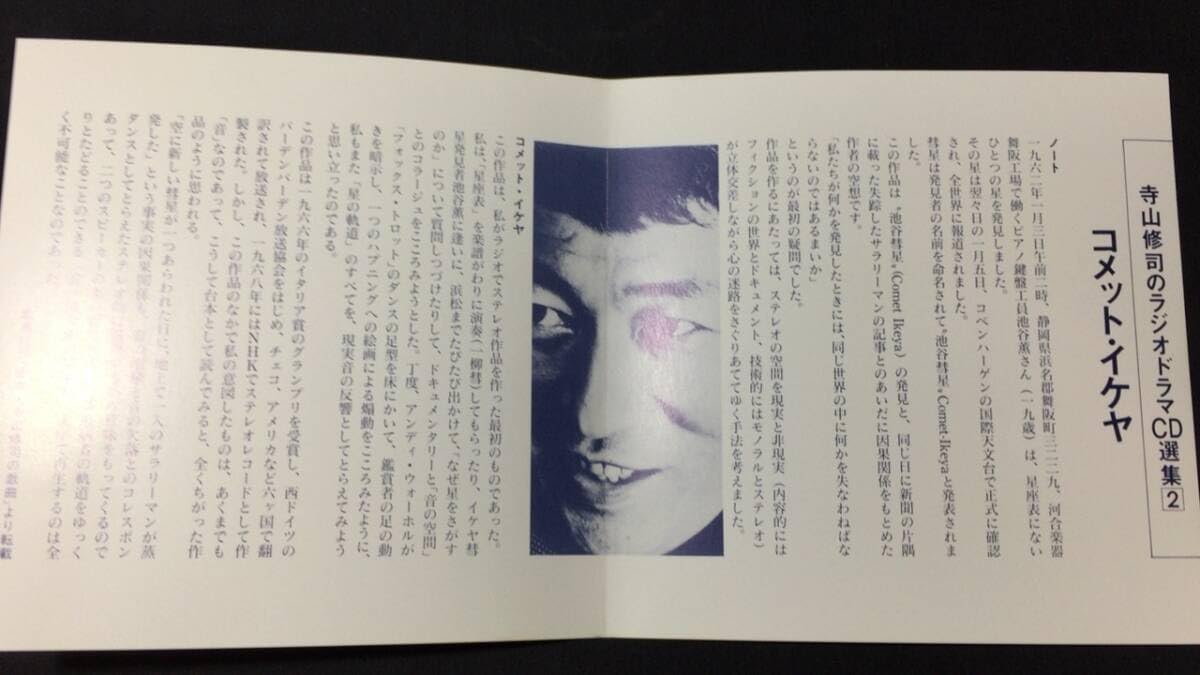 寺山修司のラジオドラマCD選集2
コメット・イケヤ
ノート
一九六二年一月三日午前二時、静岡県浜名郡舞阪町三二二九、河合楽器
舞阪工場で働くピアノ鍵盤工員池谷薫さん(一九歳)は、星座表にない
ひとつの星を発見しました。
その星は翌々日の一月五日、コペンハーゲンの国際天文台で正式に確認
され、全世界に報道されました。
彗星は発見者の名前を命名されて〝池谷彗星〟Comet-Ikeyaと発表されま
した。
この作品は〝池谷彗星〟(Comet Ikeya)の発見と、同じ日に新聞の片隅
に載った失踪したサラリーマンの記事とのあいだに因果関係をもとめた
作者の空想です。
「私たちが何かを発見したときには、同じ世界の中に何かを失なわねばな
らないのではあるまいか」
というのが最初の疑問でした。
作品を作るにあたっては、ステレオの空間を現実と非現実(内容的には
フィクションの世界とドキュメント、技術的にはモノラルとステレオ)
が立体交差しながら心の迷路をさぐりあててゆく手法を考えました。
コメット・イケヤ
この作品は、私がラジオでステレオ作品を作った最初のものであった。
私は、「星座表」を楽譜がわりに演奏(一柳彗)してもらったり、イケヤ彗
星発見者池谷薫に逢いに、浜松までたびたび出かけて、「なぜ星をさがす
のか」について質問しつづけたりして、ドキュメンタリーと「音の空間」
とのコラージュをこころみようとした。丁度、アンディ・ウォーホルが
「フォックス・トロット」のダンスの足型を床にかいて、鑑賞者の足の動
きを暗示し、一つのハプニングへの絵画による煽動をこころみたように、
私もまた「星の軌道」のすべてを、現実音の反響としてとらえてみよう
と思い立ったのである。
この作品は一九六六年のイタリア賞のグランプリを受賞し、西ドイツの
バーデンバーデン放送協会をはじめ、チェコ、アメリカなど六ヶ国で翻
訳されて放送され、一九六八年にはNHKでステレオレコードとして作
製された。しかし、この作品のなかで私の意図したものは、あくまでも
「音」なのであって、こうして台本として読んでみると、全くちがった作
品のように思われる。
「空に新しい彗星が一つあらわれた日に、地上で一人のサラリーマンが蒸
発した」という事実の因果関係を、
の欠落とのコレスポン
ダンスとしてとらえたステレオ
をもってくるので
あって、二つのスピーカー
の軌道をゆっく
りとたどることのできる
再生するのは全
く不可能なことなのであ
修司の戯曲」より転載